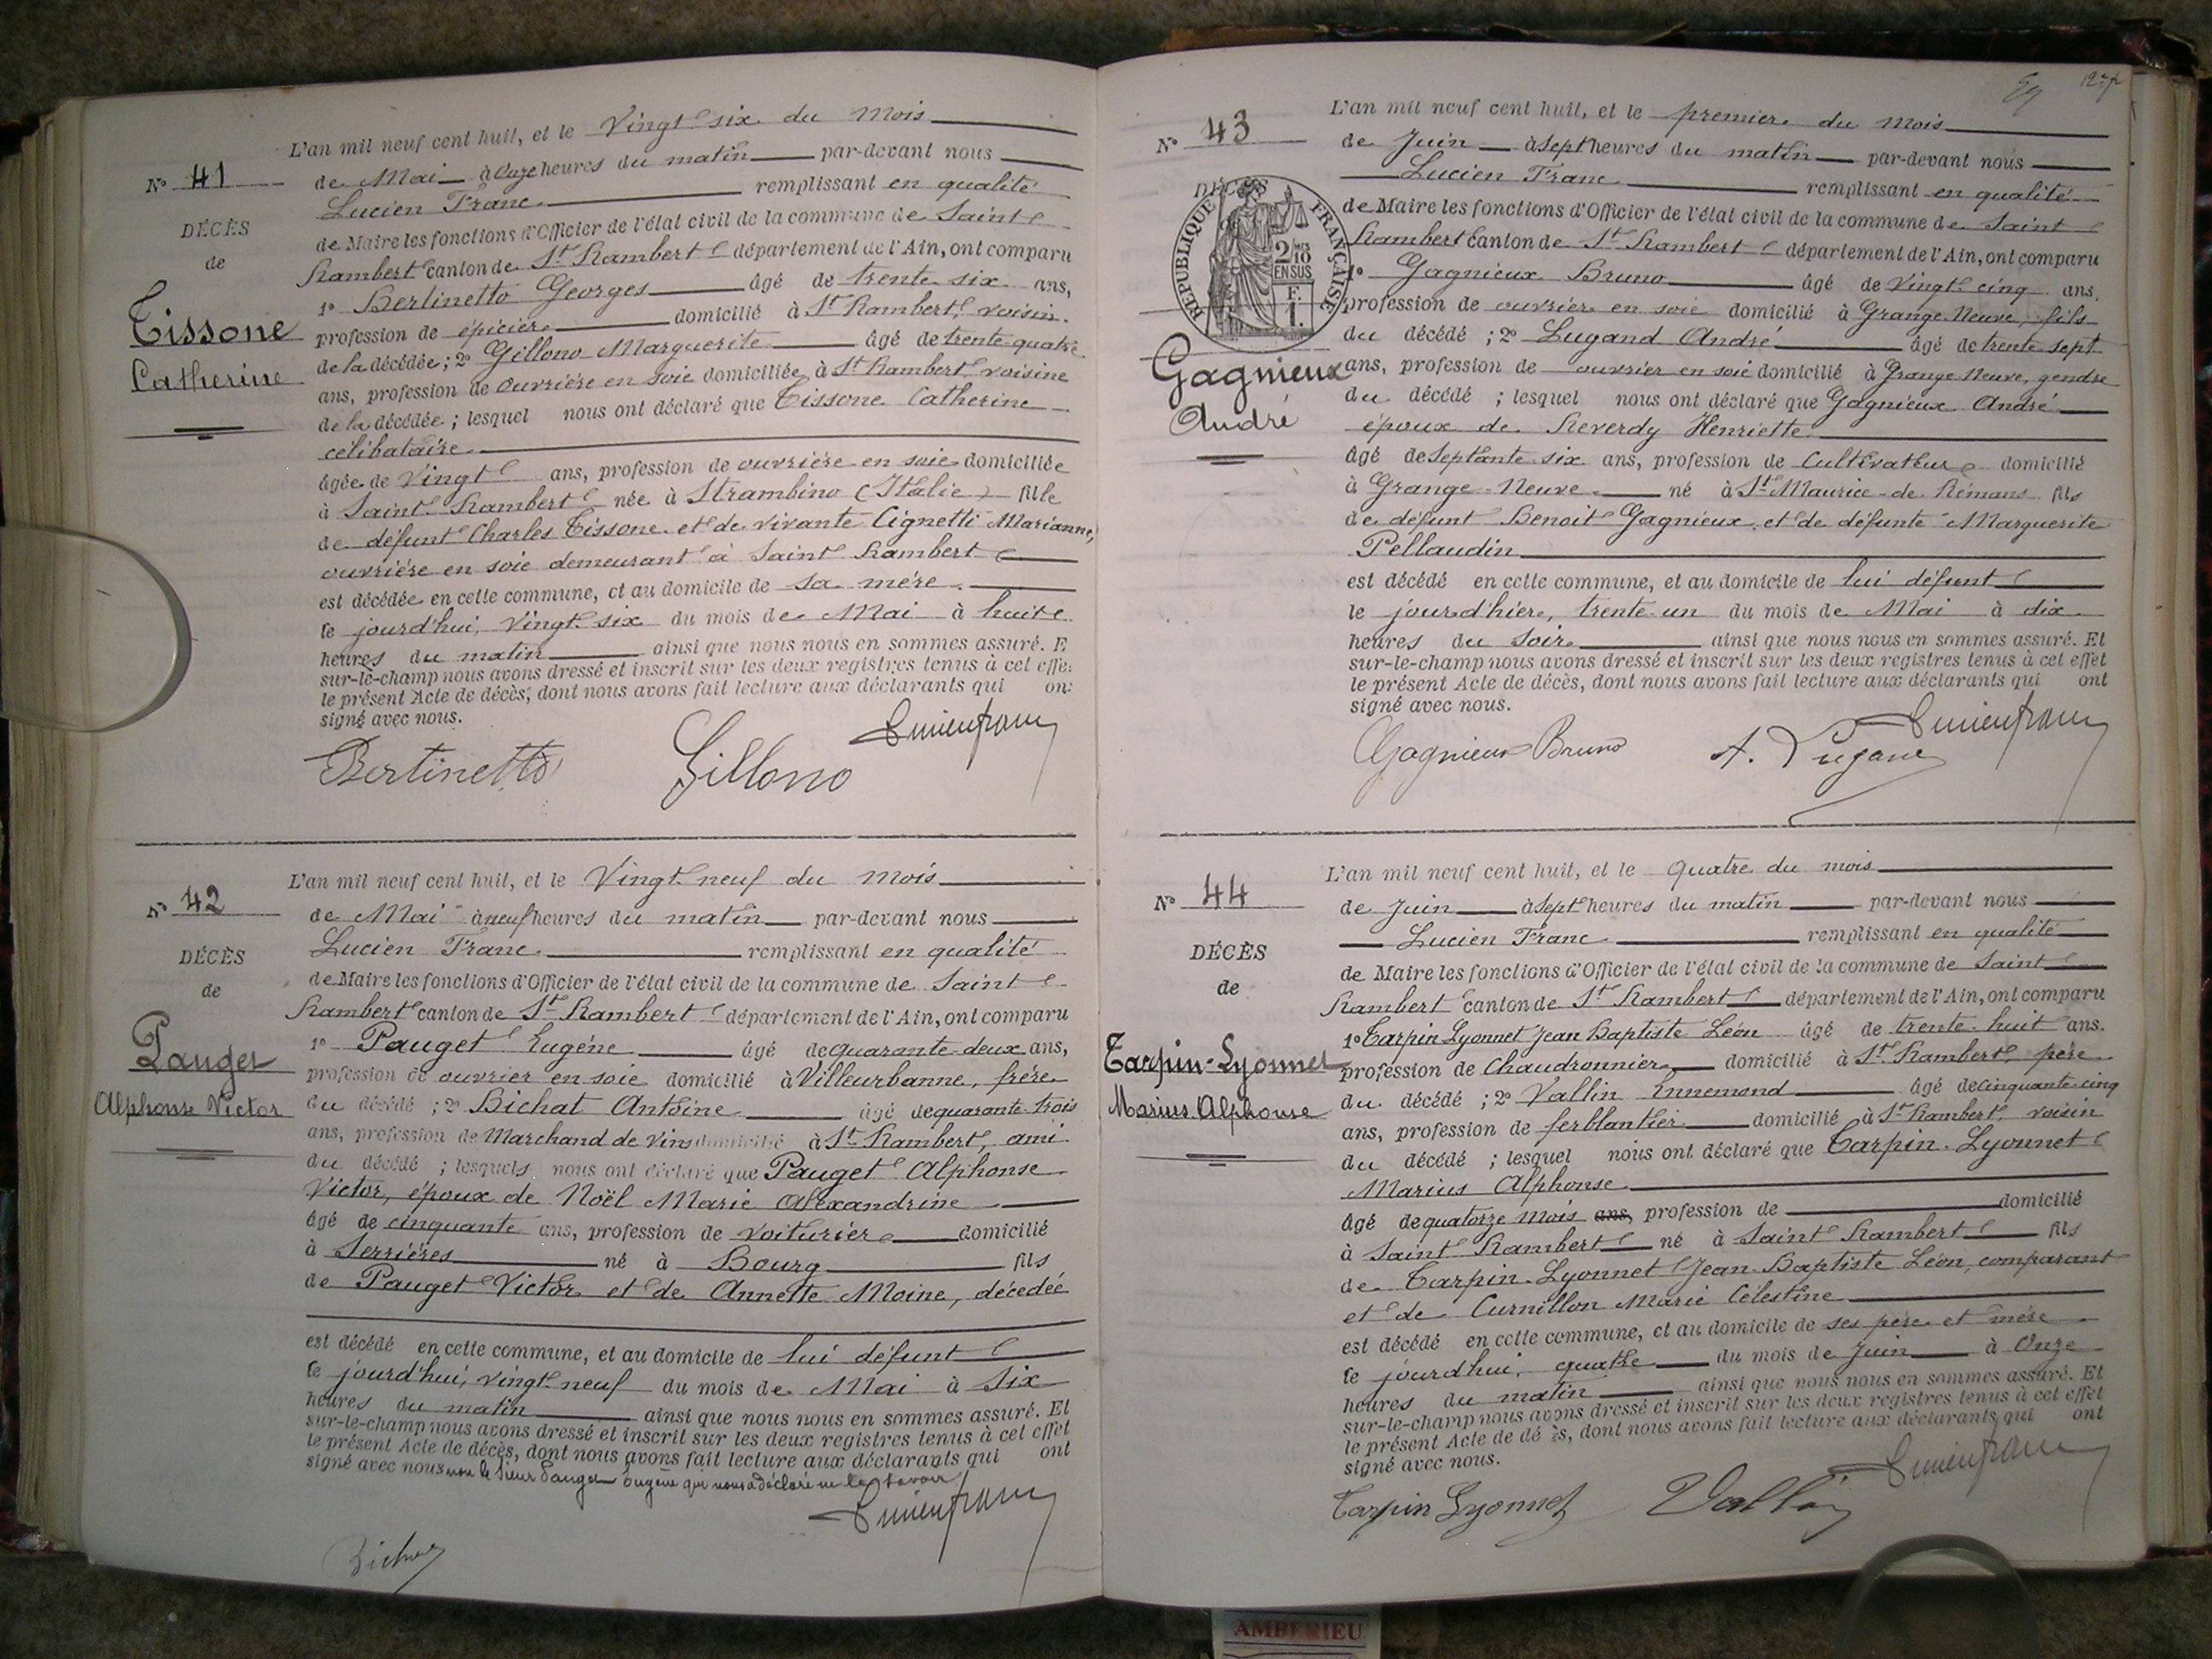 N° 41
DÉCÈS
de
Tissone
Catherine
L'an mil neuf cent huit, et le Vingt six du mois
de Mai à Onze heures du matin par-devant nous
Lucien Franc remplissant en qualité
de Maire les fonctions d'Officier de l'état civil de la commune de Saint
Rambert canton de St Rambert département de l'Ain, ont comparu
1° Bertinetto Georges âgé de trente six ans,
profession de épicier domicilié à St Rambert, voisin
de la décédée ; 2° Gillono Marguerite âgé de trente quatre
ans, profession de ouvrière en soie domiciliée à St Rambert voisine
de la décédée ; lesquel nous ont déclaré que Tissone Catherine
célibataire
âgée de Vingt ans, profession de ouvrière en soie domiciliée
à Saint Rambert née à Strambino (Italie) fille
de défunt Charles Tissone et de vivante Cignetti Marianne,
ouvrière en soie demeurant à Saint Rambert
est décédée en cette commune, et au domicile de sa mère
le jourd'hui, Vingt six du mois de Mai à huit
heures du matin ainsi que nous nous en sommes assuré. E
sur-le-champ nous avons dressé et inscrit sur les deux registres tenus à cet effe
le présent Acte de décès, dont nous avons fait lecture aux déclarants qui on
signé avec nous.
Bertinetto Gillono Lucien franc
N° 42
DÉCÈS
de
Pauget
Alphonse Victor
L'an mil neuf cent huit, et le Vingt neuf du mois
de Mai à neuf heures du matin par-devant nous
Lucien Franc remplissant en qualité
de Maire les fonctions d'Officier de l'état civil de la commune de Saint
Rambert canton de St Rambert département de l'Ain, ont comparu
1° Pauget Eugène âgé de quarante-deux ans,
profession de ouvrier en soie domicilié à Villeurbanne, frère
du décédé ; 2° Bichat Antoine âgé de quarante trois
ans, profession de Marchand de vins domicilié à St Rambert, ami
du décédé ; lesquels nous ont déclaré que Pauget Alphonse
Victor, époux de Noël Marie Alexandrine
âgé de cinquante ans, profession de voiturier domicilié
à Serrières né à Bourg fils
de Pauget Victor et de Annette Moine, décedée
est décédé en cette commune, et au domicile de lui défunt
le jourd'hui, vingt neuf du mois de Mai à Six
heures du matin ainsi que nous nous en sommes assuré. Et
sur-le-champ nous avons dressé et inscrit sur les deux registres tenus à cet effet
le présent Acte de décès, dont nous avons fait lecture aux déclarants qui ont
signé avec nous non le sieur Pauget Eugène qui nous a déclaré ne le savoir
Lucien franc
Bichat
127
N° 43
DÉCÈS
RÉPUBLIQUE FRANÇAISE
2/10 EN SUS
F.
1.
Gagnieux
André
L'an mil neuf cent huit, et le premier du mois
de Juin à sept heures du matin par-devant nous
Lucien Franc remplissant en qualité
de Maire les fonctions d'Officier de l'état civil de la commune de Saint
Rambert canton de St Rambert département de l'Ain, ont comparu
1° Gagnieux Bruno âgé de Vingt cinq ans,
profession de ouvrier en soie domicilié à Grange Neuve, fils
du décédé ; 2° Lugand André âgé de trente sept
ans, profession de ouvrier en soie domicilié à Grange Neuve, gendre
du décédé ; lesquel nous ont déclaré que Gagnieux André
époux de Reverdy Henriette
âgé de Septante six ans, profession de Cultivateur domicilié
à Grange-Neuve né à St Maurice-de Rémans fils
de défunt Benoit Gagnieux et de défunte Marguerite
Pellaudin
est décédé en cette commune, et au domicile de lui défunt
le jourd'hier, trente un du mois de Mai à dix
heures du Soir ainsi que nous nous en sommes assuré. Et
sur-le-champ nous avons dressé et inscrit sur les deux registres tenus à cet effet
le présent Acte de décès, dont nous avons fait lecture aux déclarants qui ont
signé avec nous.
Gagnieux Bruno A. Lugand Lucien franc
N° 44
DÉCÈS
de
Tarpin-Lyonnet
Marius Alphonse
L'an mil neuf cent huit, et le quatre du mois
de Juin à Sept heures du matin par-devant nous
Lucien Franc remplissant en qualité
de Maire les fonctions d'Officier de l'état civil de la commune de Saint
Rambert canton de St Rambert département de l'Ain, ont comparu
1° Tarpin Lyonnet Jean Baptiste Léon âgé de trente-huit ans.
profession de Chaudronnier domicilié à St Rambert, père
du décédé ; 2° Vallin Ennemond âgé de cinquante cinq
ans, profession de ferblantier domicilié à St Rambert, voisin
du décédé ; lesquel nous ont déclaré que Tarpin-Lyonnet
Marius Alphonse
âgé de quatorze mois ans, profession de domicilié
à Saint Rambert né à Saint Rambert fils
de Tarpin-Lyonnet Jean-Baptiste Léon, comparant
et de Curnillon Marie Célestine
est décédé en cette commune, et au domicile de ses père et mère
le jourd'hui, quatre du mois de Juin à Onze
heures du matin ainsi que nous nous en sommes assuré. Et
sur-le-champ nous avons dressé et inscrit sur les deux registres tenus à cet effet
le présent Acte de dé ès, dont nous avons fait lecture aux déclarants qui ont
signé avec nous.
Tarpin Lyonnet Vallin Lucien franc
AMBERIEU